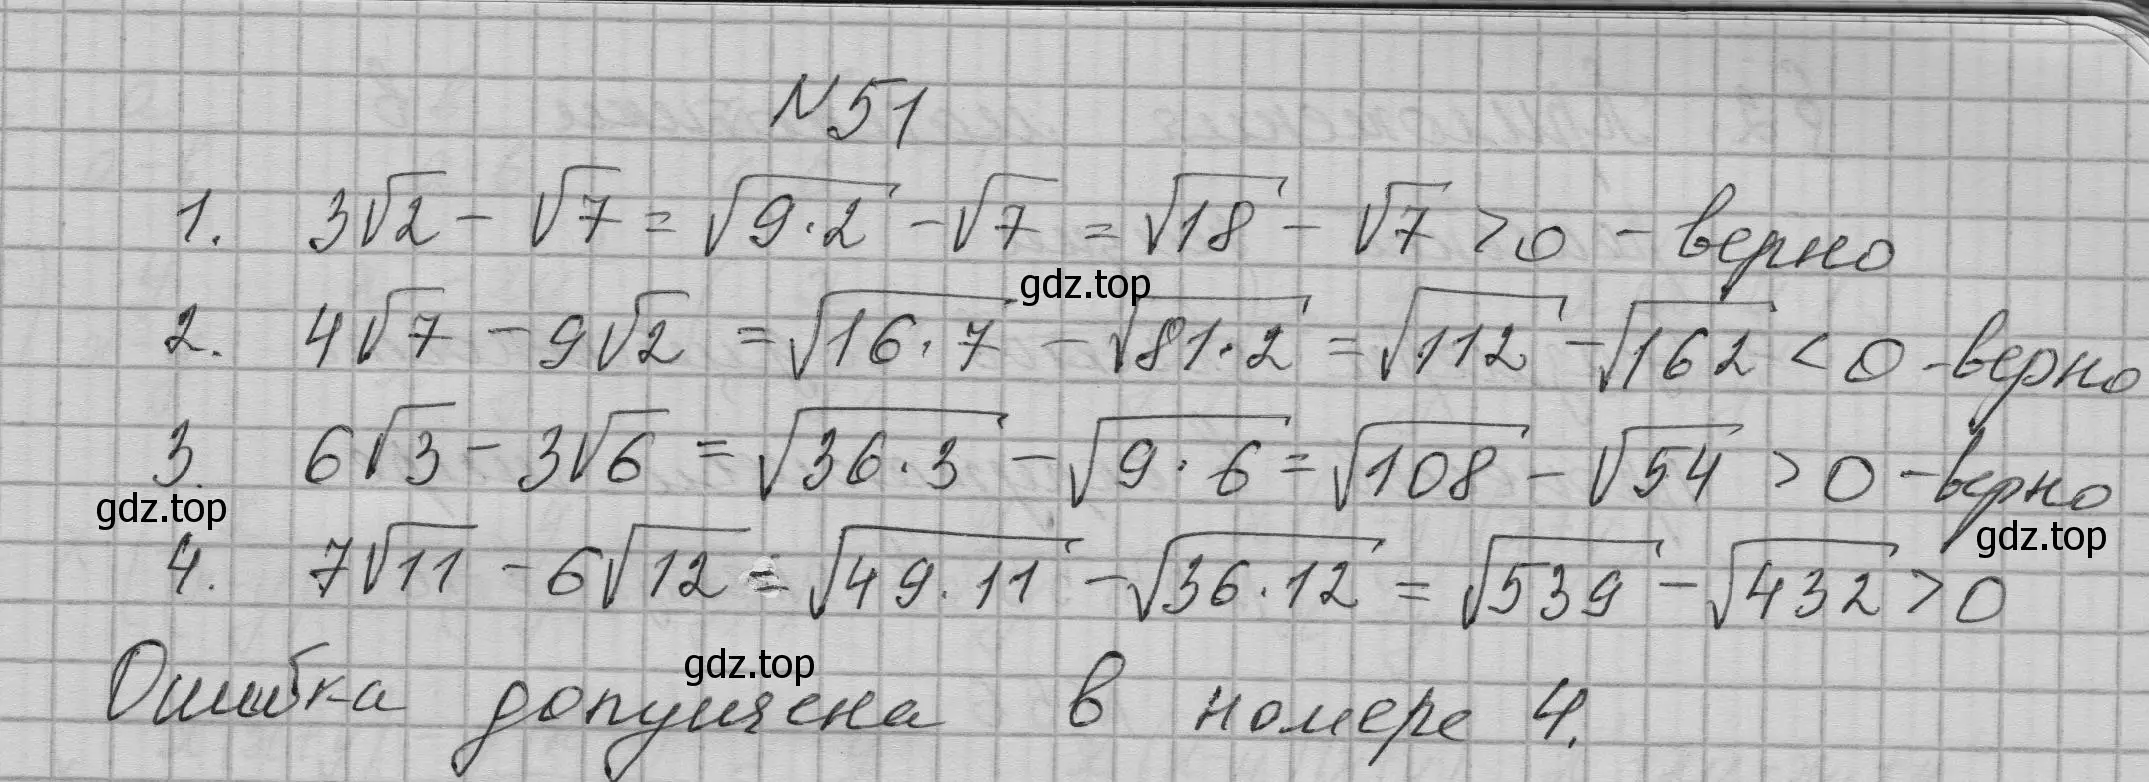 №51
1. 3√2 - √7 = √9·2 - √7 = √18 - √7 > 0 - верно
gdz.top
2. 4√7 - 9√2 = √16·7 - √81·2 = √112 - √162 < 0 - верно
3. 6√3 - 3√6 = √36·3 - √9·6 = √108 - √54 > 0 - верно
gdz.top
gdz.top
4. 7√11 - 6√12 = √49·11 - √36·12 = √539 - √432 > 0
gdz.top
Ошибка допущена в номере 4.